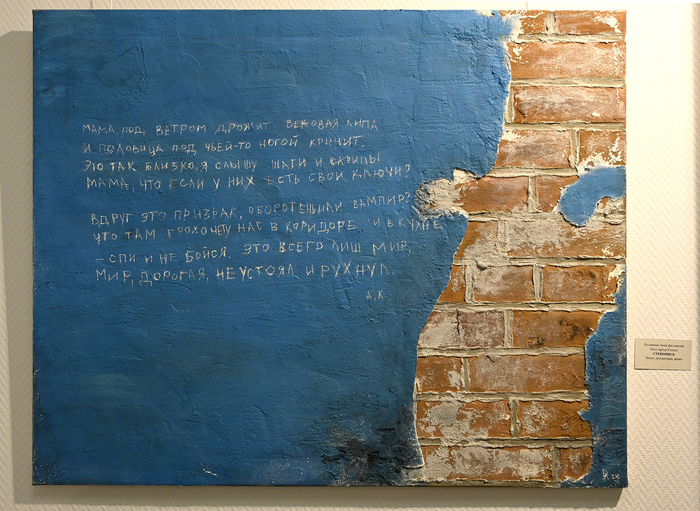 МАМА, ПОД ВЕТРОМ ДРОЖИТ ВЕКОВАЯ ЛИПА
И ПОЛОВИЦА ПОД ЧЬЕЙ-ТО НОГОЙ КРИЧИТ.
ЭТО ТАК БЛИЗКО, Я СЛЫШУ ШАГИ И СКРИПЫ
МАМА, ЧТО ЕСЛИ У НИХ ЕСТЬ СВОИ КЛЮЧИ?
ВДРУГ ЭТО ПРИЗРАК, ОБОРОТЕНЬ ИЛИ ВАМПИР?
ЧТО ТАМ ГРОХОЧЕТ У НАС В КОРИДОРЕ И В КУХНЕ
– СПИ И НЕ БОЙСЯ. ЭТО ВСЕГО ЛИШ МИР,
МИР, ДОРОГАЯ, НЕ УСТОЯЛ И РУХНУЛ.
А.К